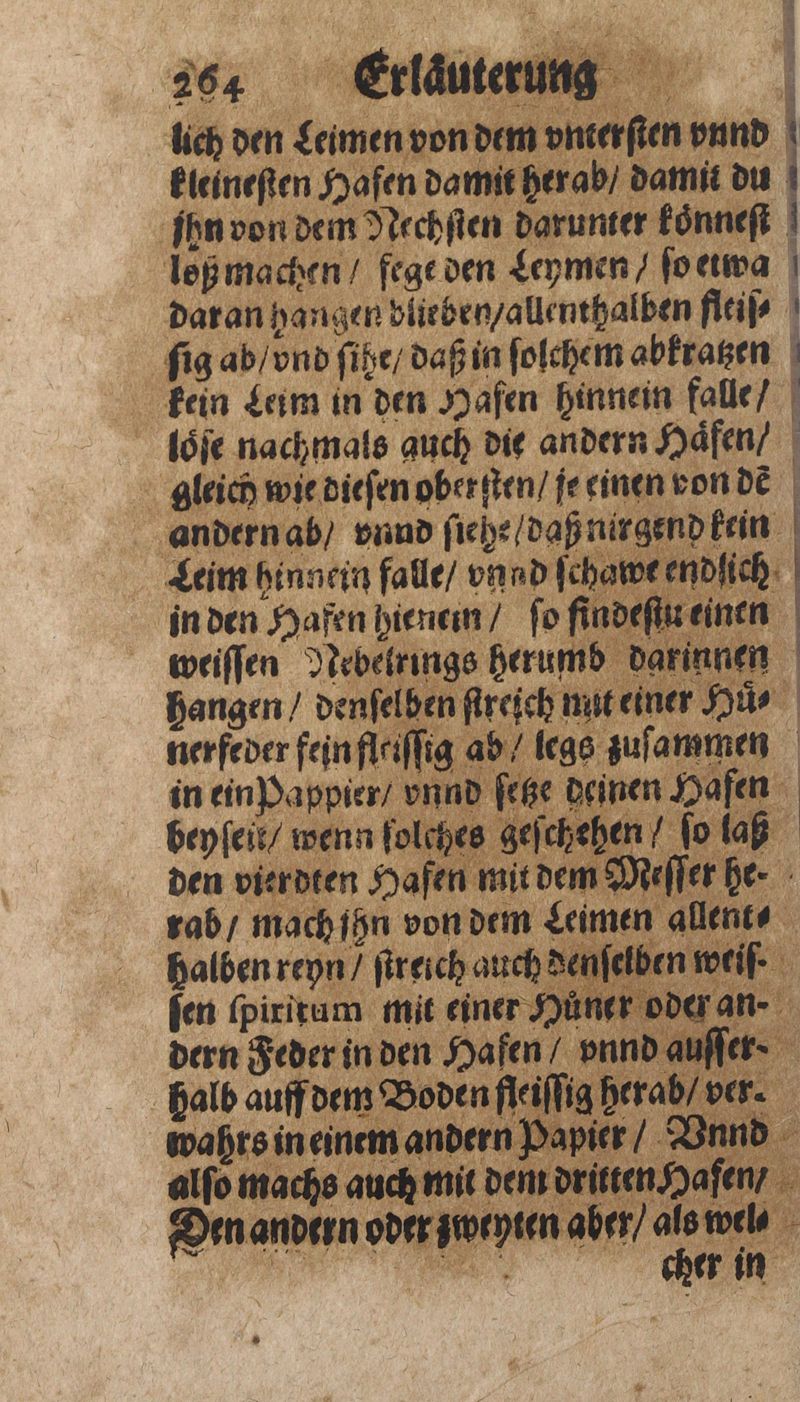 264 Erläuterung
lich den Leimen von dem vnterſten vnnd
kleineſten Hafen damit herab/ damit du
jhn von dem Nechſten darunter könneſt
loß machen / fege den Leymen / ſo etwa
daran hangen blieben/allenthalben fleiſ⸗
ſig ab/vnd ſihe/ daß in ſolchem abkratzen
kein Leim in den Hafen hinnein falle/
löſe nachmals auch die andern Häfen/
gleich wie dieſen oberſten/ je einen von dẽ
andern ab/ vnnd ſiehe/daß nirgend kein
Leim hinnein falle/ vnnd ſchawe endlich
in den Hafen hienein / ſo findeſtu einen
weiſſen Nebelrings herumb darinnen
hangen / denſelben ſtreich mit einer Hü⸗
nerfeder fein fleiſſig ab / legs zuſammen
in ein Pappier/ vnnd ſetze deinen Hafen
beyſeit/ wenn ſolches geſchehen / ſo laß
den vierdten Hafen mit dem Meſſer he-
rab / mach jhn von dem Leimen allent⸗
halben reyn / ſtreich auch denſelben weiſ-
ſen ſpiritum mit einer Hüner oder an-
dern Feder in den Hafen / vnnd auſſer-
halb auff dem Boden fleiſſig herab/ ver-
wahrs in einem andern Papier / Vnnd
alſo machs auch mit dem dritten Hafen/
Den andern oder zweyten aber/ als wel⸗
cher in